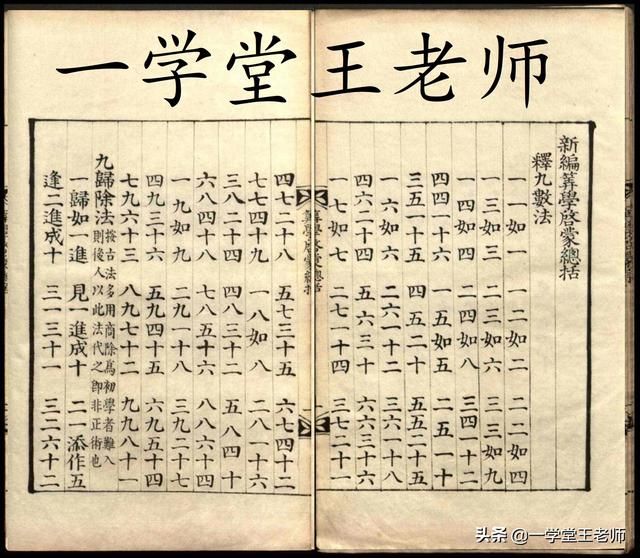 一学堂王老师
新編筭學啓蒙總括
釋九數法
一一如一 一二如二 二二如四
一三如三 二三如六 三三如九
一四如四 二四如八 三四一十二
四四一十六 一五如五 二五一十
三五一十五 四五二十 五五二十五
一六如六 二六一十二 三六一十八
四六二十四 五六三十 六六三十六
一七如七 二七一十四 三七二十一
筭學啓蒙總括
四七二十八 五七三十五 六七四十二
七七四十九 一八如八 二八一十六
三八二十四 四八三十二 五八四十
六八四十八 七八五十六 八八六十四
一九如九 二九一十八 三九二十七
四九三十六 五九四十五 六九五十四
七九六十三 八九七十二 九九八十一
九歸除法 按古法多用商除爲初學者難入
則後人以此法代之即非正術也
一歸如一進 見一進成十 二一添作五
逢二進成十 三一三十一 三二六十二
头条 @一学堂王老师